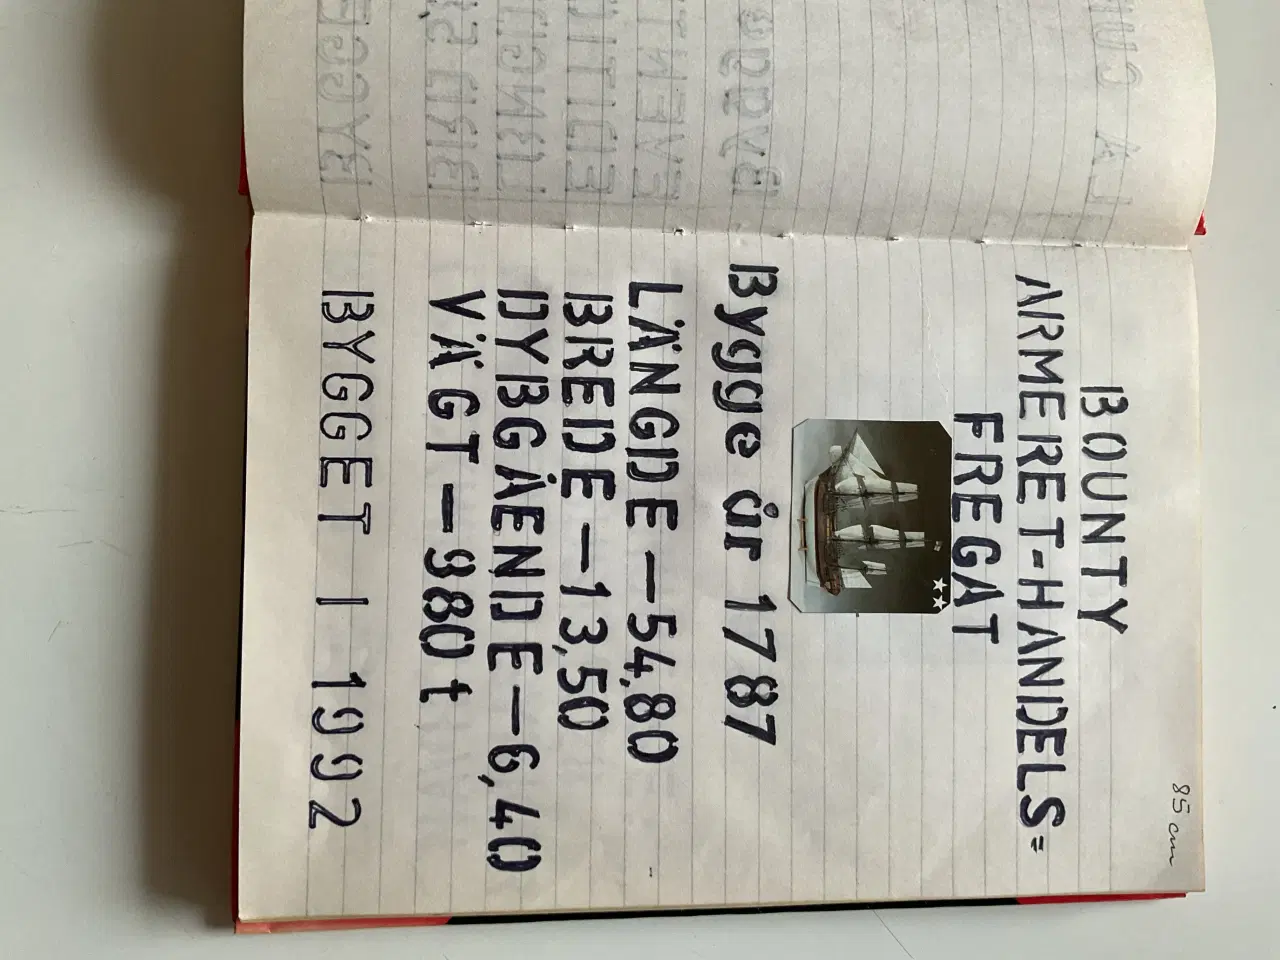 85 cm
BOUNTY
ARMERET-HANDELS=
FREGAT
Bygge år 1787
LÄNGDE – 54,80
BREDE – 13,50
DYBGÅENDE – 6,40
VÄGT – 980 t
BYGGET I 1992